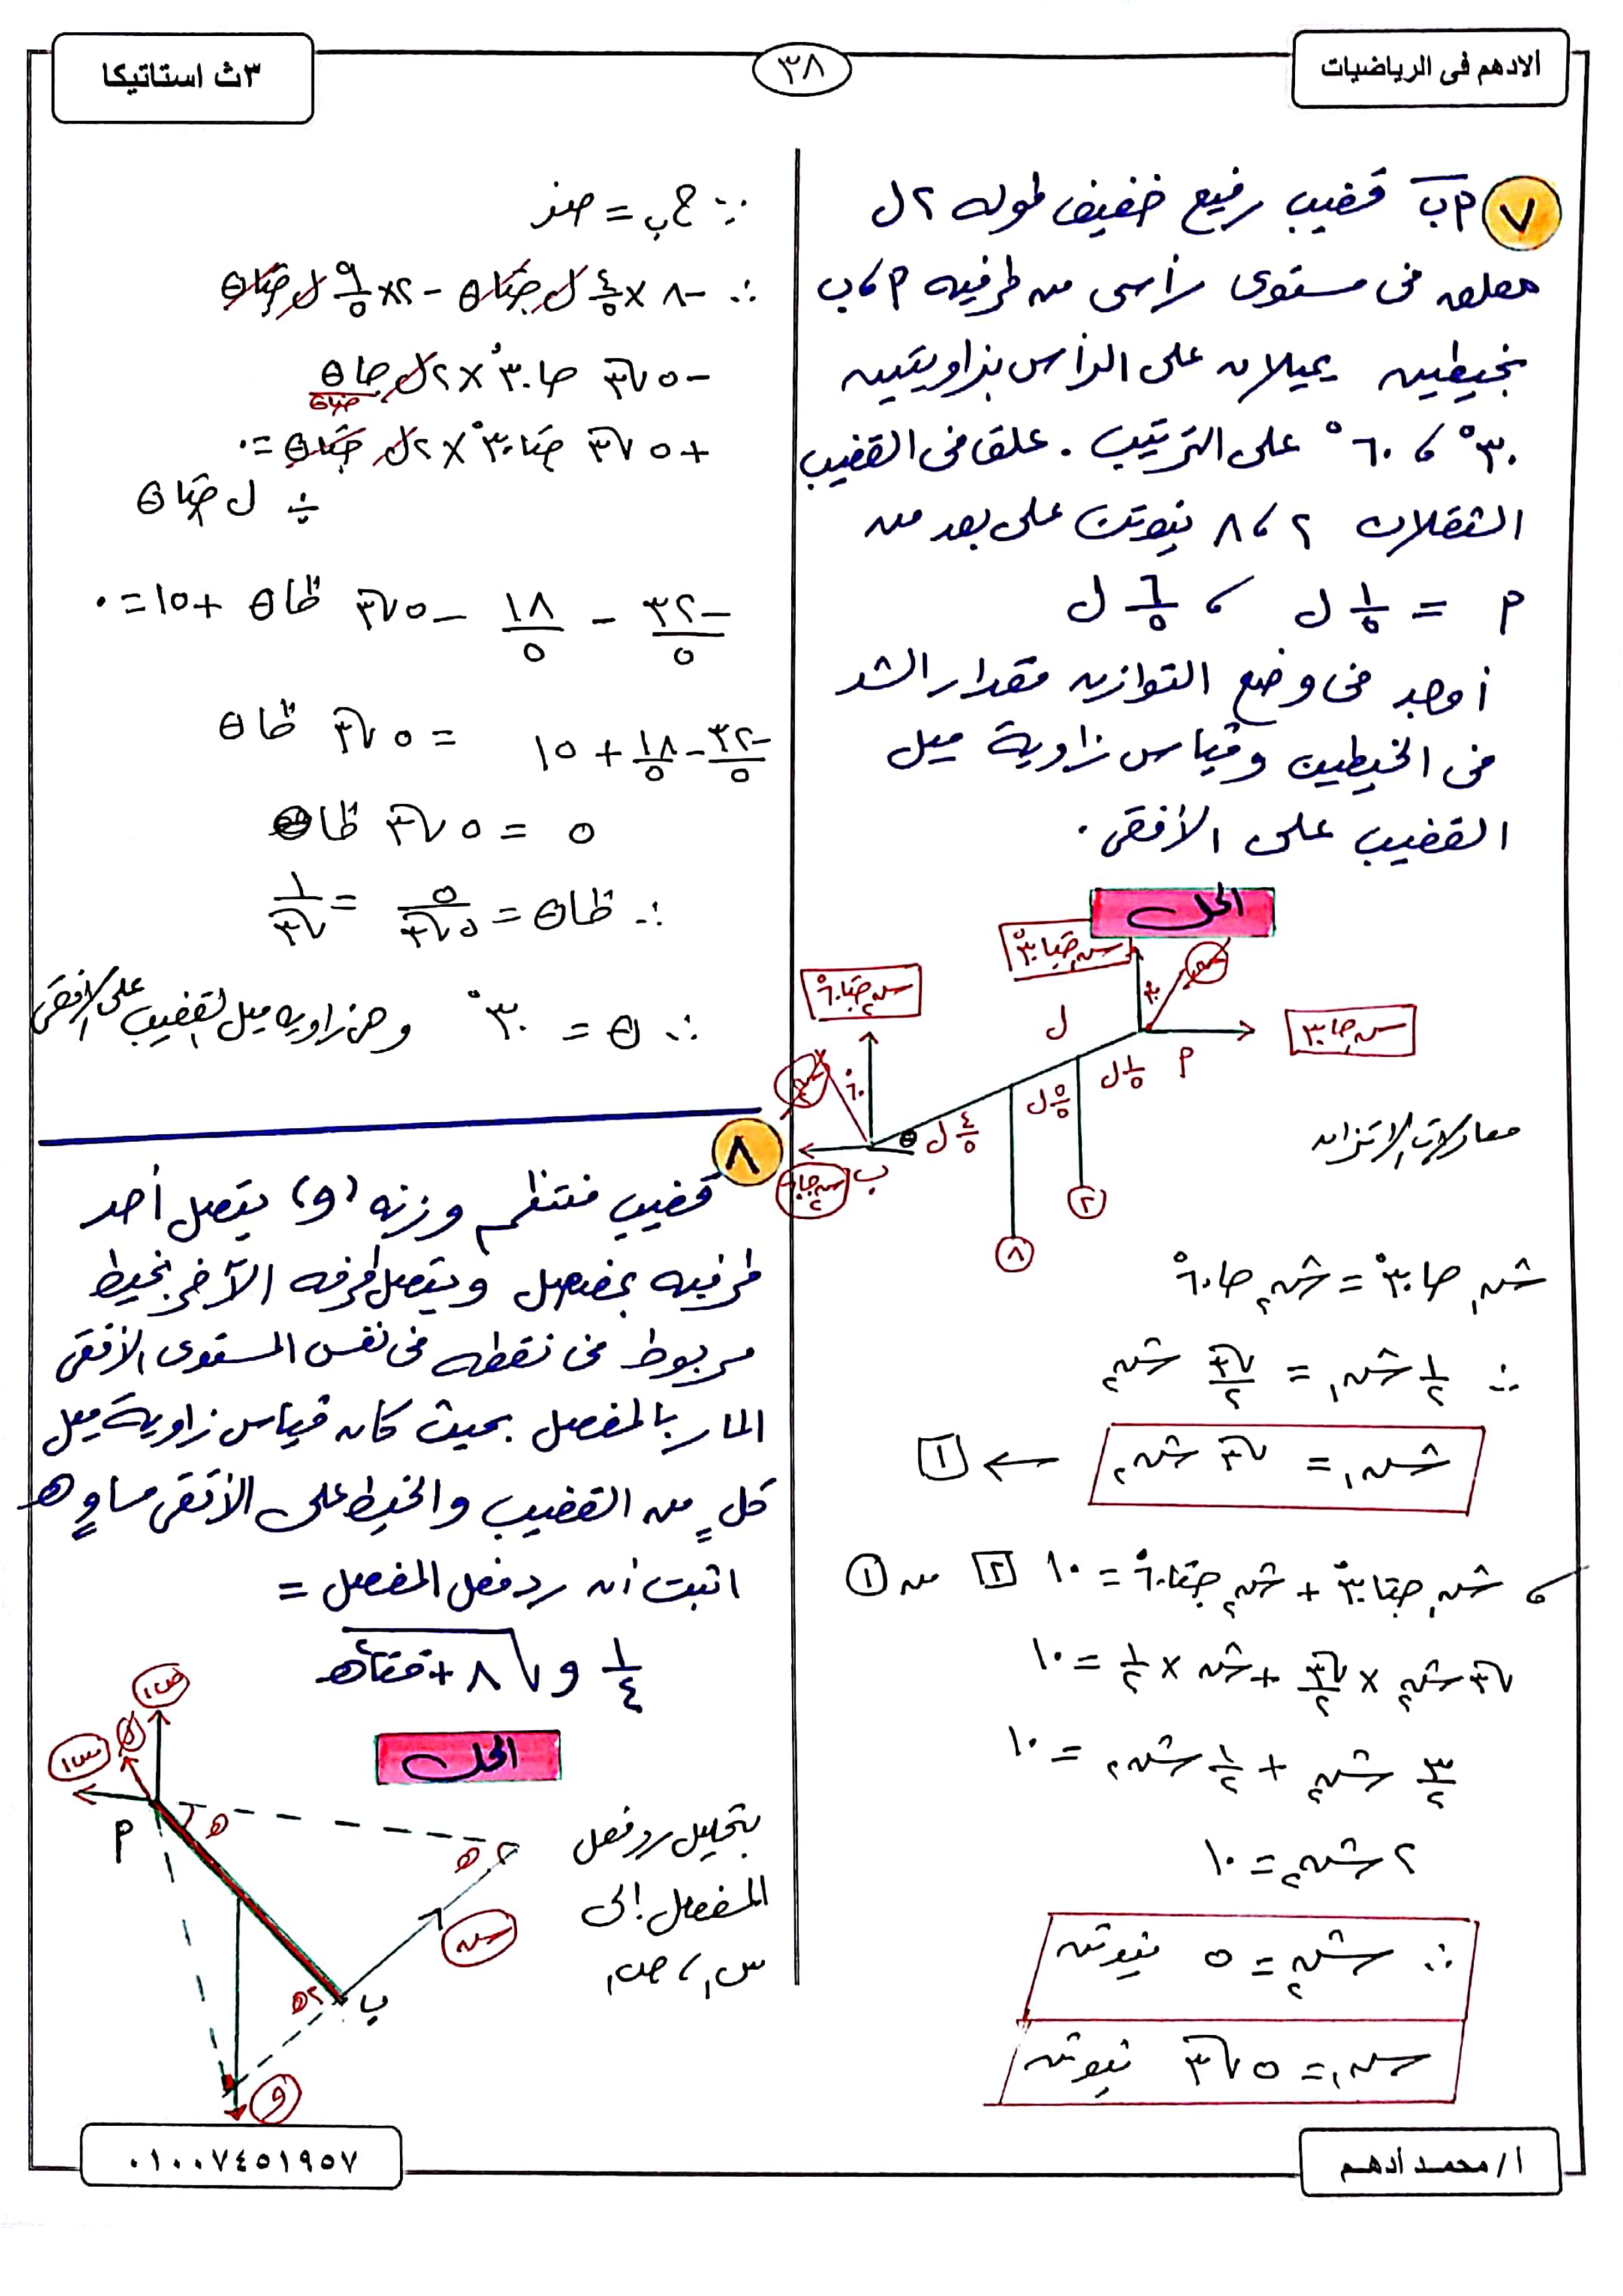 الادهم فى الرياضيات
٣٨
٣ث استاتيكا
٧ أب قضيب رفيع خفيف طوله ٢ل
معلق فى مستوى رأسى من طرفيه أ ، ب
بخيطين يميلان على الرأس بزاويتين
٣٠° ، ٦٠° على الترتيب . علق فى القضيب
الثقلان ٢ ، ٨ نيوتن على بعد من
أ = ١/٥ ل ، ٦/٥ ل
أوجد فى وضع التوازن مقدار الشد
فى الخيطين وقياس زاوية ميل
القضيب على الأفقى .
الحل
ش١ جتا ٣٠°
ش١
٣٠
ش١ جا ٣٠
ش٢ جتا ٦٠°
ش٢
٦٠°
ش٢ جا ٦٠
ل
أ
١/٥ ل
٥/٥ ل
٤/٥ ل
θ
ب
٢
٨
معادلات الاتزان
ش١ جا ٣٠° = ش٢ جا ٦٠°
∴ ١/٢ ش١ = √٣/٢ ش٢
ش١ = √٣ ش٢ ← ١
، ش١ جتا ٣٠° + ش٢ جتا ٦٠° = ١٠ ٢ من ١
√٣ ش٢ × √٣/٢ + ش٢ × ١/٢ = ١٠
٣/٢ ش٢ + ١/٢ ش٢ = ١٠
٢ ش٢ = ١٠
∴ ش٢ = ٥ نيوتن
ش١ = ٥√٣ نيوتن
∵ جـب = صفر
∴ -٨ × ٤/٥ ل جتا θ - ٢ × ٩/٥ ل جتا θ
-٥√٣ جا ٣٠° × ٢ل جا θ
جتا θ
+٥√٣ جتا ٣٠° × ٢ل جتا θ = ٠
÷ ل جتا θ
-٣٢/٥ - ١٨/٥ - ٥√٣ ظا θ + ١٥ = ٠
-٣٢/٥ - ١٨/٥ + ١٥ = ٥√٣ ظا θ
٥ = ٥√٣ ظا θ
∴ ظا θ = ٥/٥√٣ = ١/√٣
∴ θ = ٣٠° وهى زاوية ميل القضيب على الأفقى
٨ قضيب منتظم وزنه (و) يتصل أحد
طرفيه بمفصل ويتصل طرفه الآخر بخيط
مربوط فى نقطه فى نفس المستوى الأفقى
المار بالمفصل بحيث كان قياس زاوية ميل
كل من القضيب والخيط على الأفقى مساوٍ هـ
اثبت أن رد فعل المفصل =
١/٤ و √٨ + قتا٢هـ
الحل
بتحليل رد فعل
المفصل إلى
س١ ، ص١
ص١
س١
أ
هـ
هـ
ش
٢هـ
ب
و
أ/ محمد أدهم
٠١٠٠٧٤٥١٩٥٧